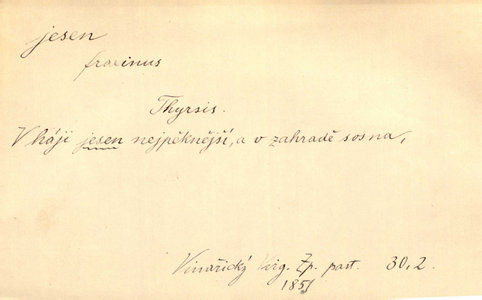 jesen
fraxinus
Thyrsis.
V háji jesen nejpěknější, a v zahradě sosna,
Vinařický Virg. Zp. past. 30, 2.
1851